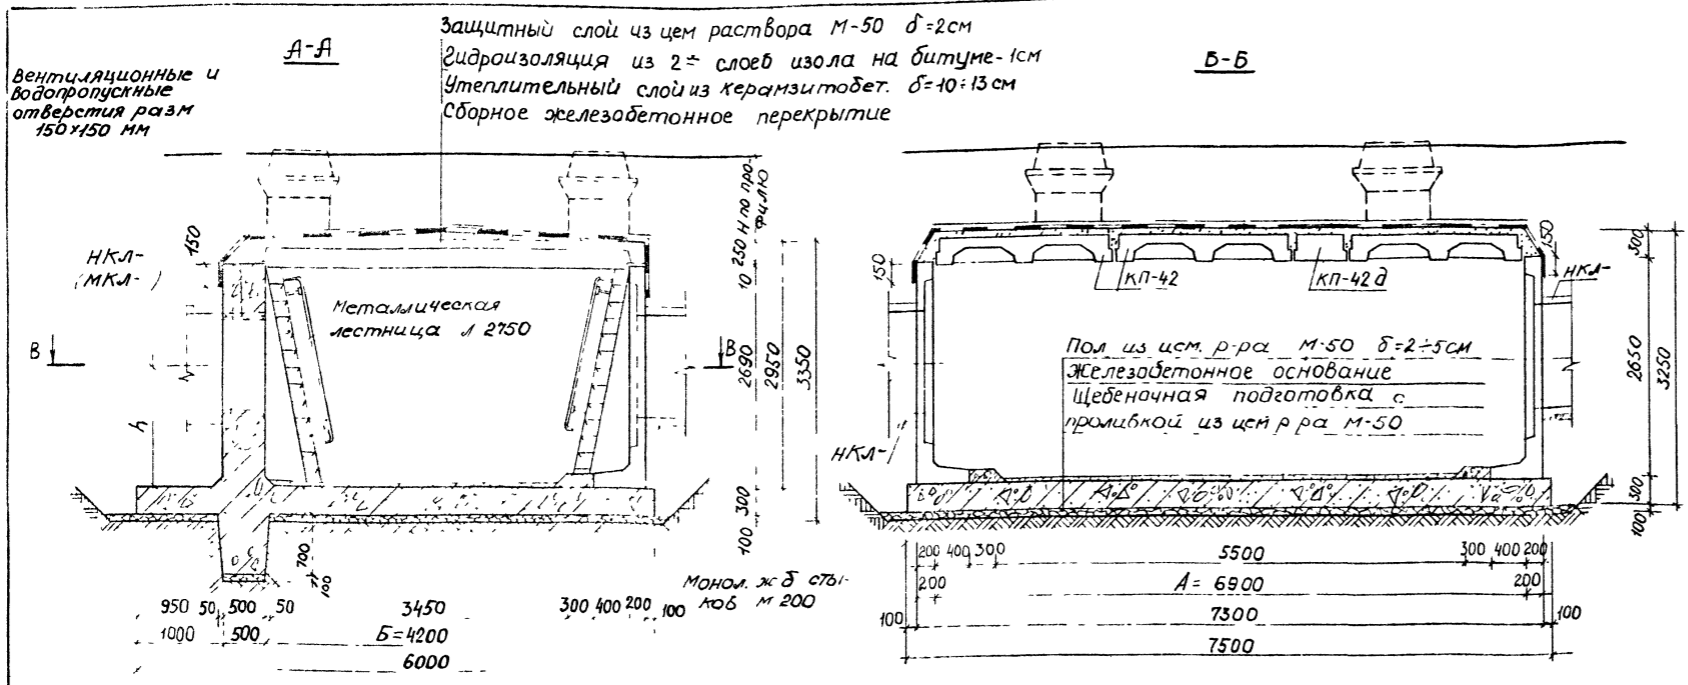 А-А
Защитный слой из цем раствора М-50 δ=2см
Гидроизоляция из 2= слоев изола на битуме-1см
Утеплительный слой из керамзитобет. δ=10÷13см
Сборное железобетонное перекрытие
Б-Б
Вентиляционные и
водопропускные
отверстия разм
150×150 мм
НКЛ-
(МКЛ-)
150
Металлическая
лестница Л 2750
В
В
h
Н по про-
филю
250
10
2690
300
100
2950
3350
700
100
950 50 500 50 3450 300 400 200 100
1000 500 Б=4200
6000
Монол. ж б сты-
ков м 200
150
КП-42
КП-42д
150
НКЛ-
НКЛ-
Пол из цем. р-ра М-50 δ=2÷5см
Железобетонное основание
Щебеночная подготовка с
проливкой из цем р ра М-50
300
2650
300
100
3250
200 400 300 5500 300 400 200
200 А=6900 200
100 7300 100
7500